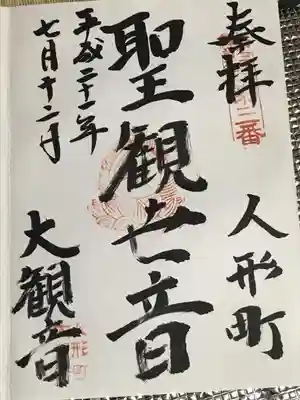 奉拝
人形町
聖観世音
大観音
平成二十一年
七月十二日